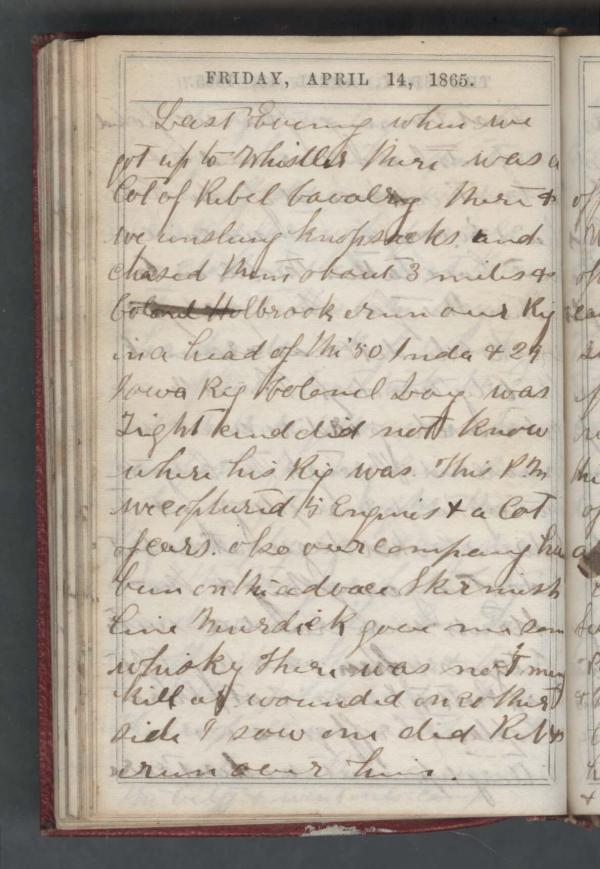 FRIDAY, APRIL 14, 1865.
Last Evening when we
got up to Whistler there was a
Lot of Rebel Cavalry there &
we unslung knopsacks and
chased them about 3 miles &
Colonel Holbrook erun our Rig
in a head of thi 50 Inda & 29
Iowa Rig Colonel Day was
Tight and did not know
where his Rig was. This P.M
we coptured 5 Engines & a Lot
of cars. olso our company has
bin on thi advace Skirmish
Line Murdick gave me som
whisky There was not meny
Kill or wounded on eother
side I sow one did Reb &
erun over him.